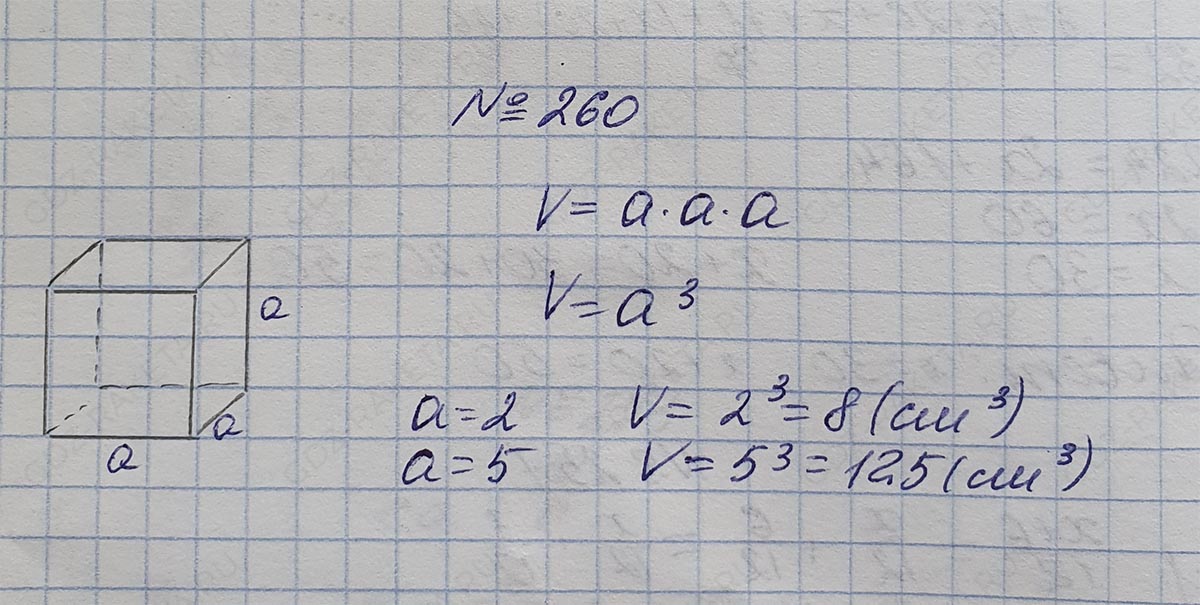 № 260
V = a · a · a
V = a³
a
a
a
a = 2 V = 2³ = 8 (см³)
a = 5 V = 5³ = 125 (см³)